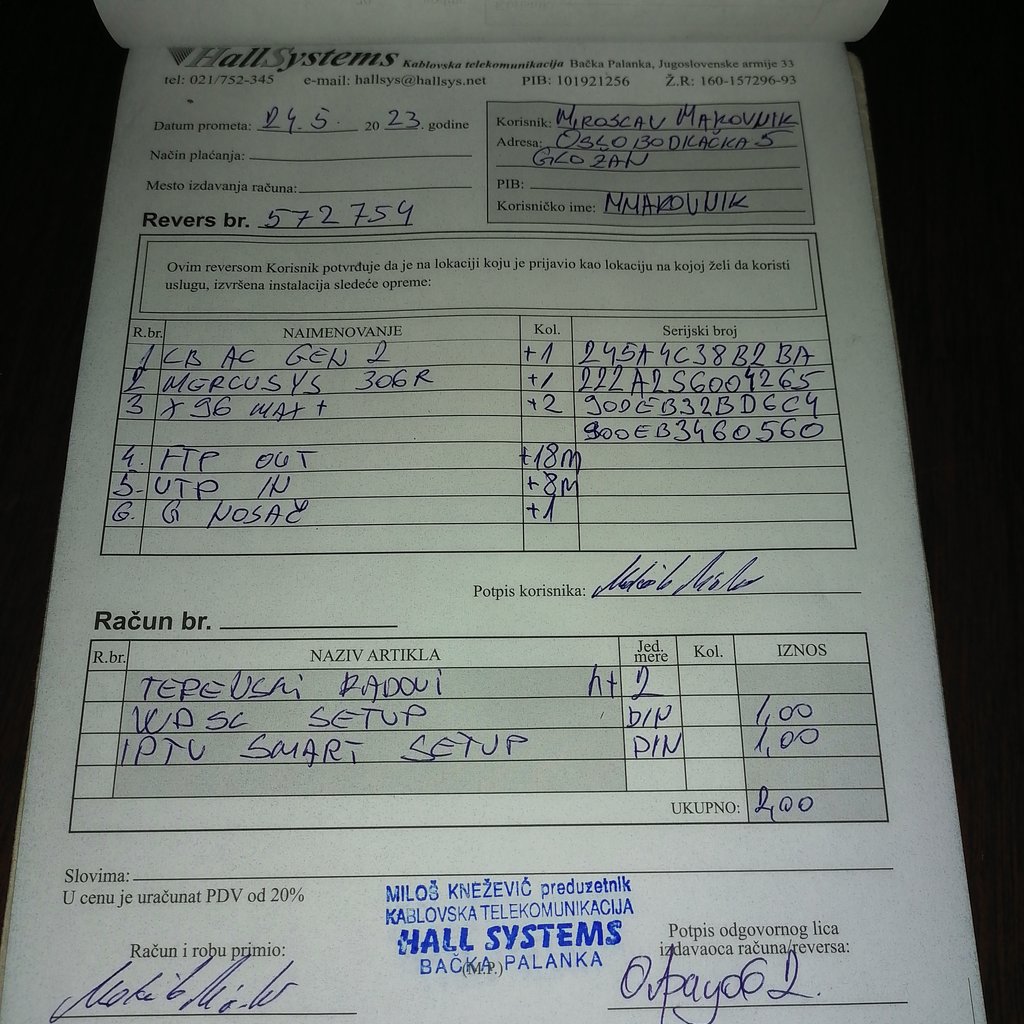 HallSystems Kablovska telekomunikacija Bačka Palanka, Jugoslovenske armije 33
tel: 021/752-345 e-mail: hallsys@hallsys.net PIB: 101921256 Ž.R: 160-157296-93
Datum prometa: 24.5. 2023. godine
Način plaćanja:
Mesto izdavanja računa:
Revers br. 572754
Korisnik: MIROSLAV MAKOVNIK
Adresa: OSLOBODILAČKA 5
GLOŽAN
PIB:
Korisničko ime: MMAKOVNIK
Ovim reversom Korisnik potvrđuje da je na lokaciji koju je prijavio kao lokaciju na kojoj želi da koristi
uslugu, izvršena instalacija sledeće opreme:
R.br. NAIMENOVANJE Kol. Serijski broj
1 LB AC GEN 2 +1 245A4C38B2BA
2 MERCUSYS 306R +1 222A2S6004265
3 X96 MAX+ +2 900EB32BD6C4
900EB3460560
4. FTP OUT +18m
5. UTP IN +8m
6. G NOSAČ +1
Potpis korisnika:
Račun br.
R.br. NAZIV ARTIKLA Jed. mere Kol. IZNOS
TERENSKI RADOVI h+ 2
SETUP DIN 1,00
IPTV SMART SETUP DIN 1,00
UKUPNO: 2,00
Slovima:
U cenu je uračunat PDV od 20%
MILOŠ KNEŽEVIĆ preduzetnik
KABLOVSKA TELEKOMUNIKACIJA
HALL SYSTEMS
BAČKA PALANKA
(M.P.)
Račun i robu primio:
Potpis odgovornog lica
izdavaoca računa/reversa: